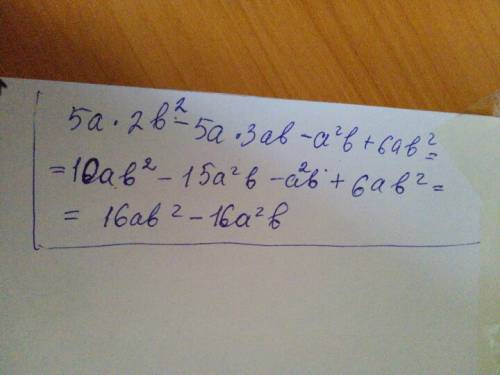 5a·2b²-5a·3ab-a²b+6ab²=
=10ab²-15a²b-a²b+6ab²=
=16ab²-16a²b